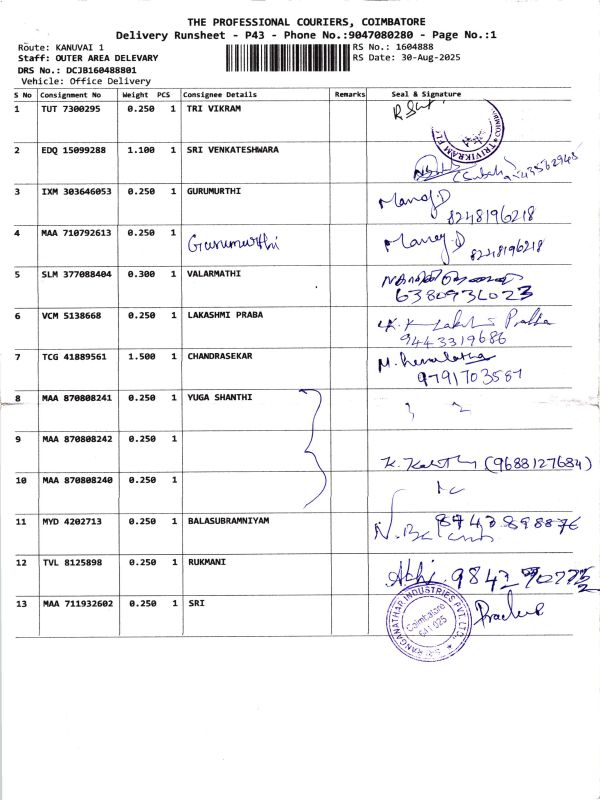 THE PROFESSIONAL COURIERS, COIMBATORE
Delivery Runsheet - P43 - Phone No.:9047080280 - Page No.:1
Route: KANUVAI 1 RS No.: 1604888
Staff: OUTER AREA DELEVARY RS Date: 30-Aug-2025
DRS No.: DCJB160488801
Vehicle: Office Delivery
S No Consignment No Weight PCS Consignee Details Remarks Seal & Signature
1 TUT 7300295 0.250 1 TRI VIKRAM
2 EDQ 15099288 1.100 1 SRI VENKATESHWARA
3 IXM 303646053 0.250 1 GURUMURTHI Manoj.D
8248196218
4 MAA 710792613 0.250 1 Gurumurthi Manoj.D
8248196218
5 SLM 377088404 0.300 1 VALARMATHI
6380931023
6 VCM 5138668 0.250 1 LAKASHMI PRABA
9443319686
7 TCG 41889561 1.500 1 CHANDRASEKAR M. Hemalatha
9791703587
8 MAA 870808241 0.250 1 YUGA SHANTHI
9 MAA 870808242 0.250 1
(9688127684)
10 MAA 870808240 0.250 1
11 MYD 4202713 0.250 1 BALASUBRAMNIYAM
12 TVL 8125898 0.250 1 RUKMANI
13 MAA 711932602 0.250 1 SRI
SRI RANGANATHAR INDUSTRIES PVT. LTD.
Coimbatore
641 025